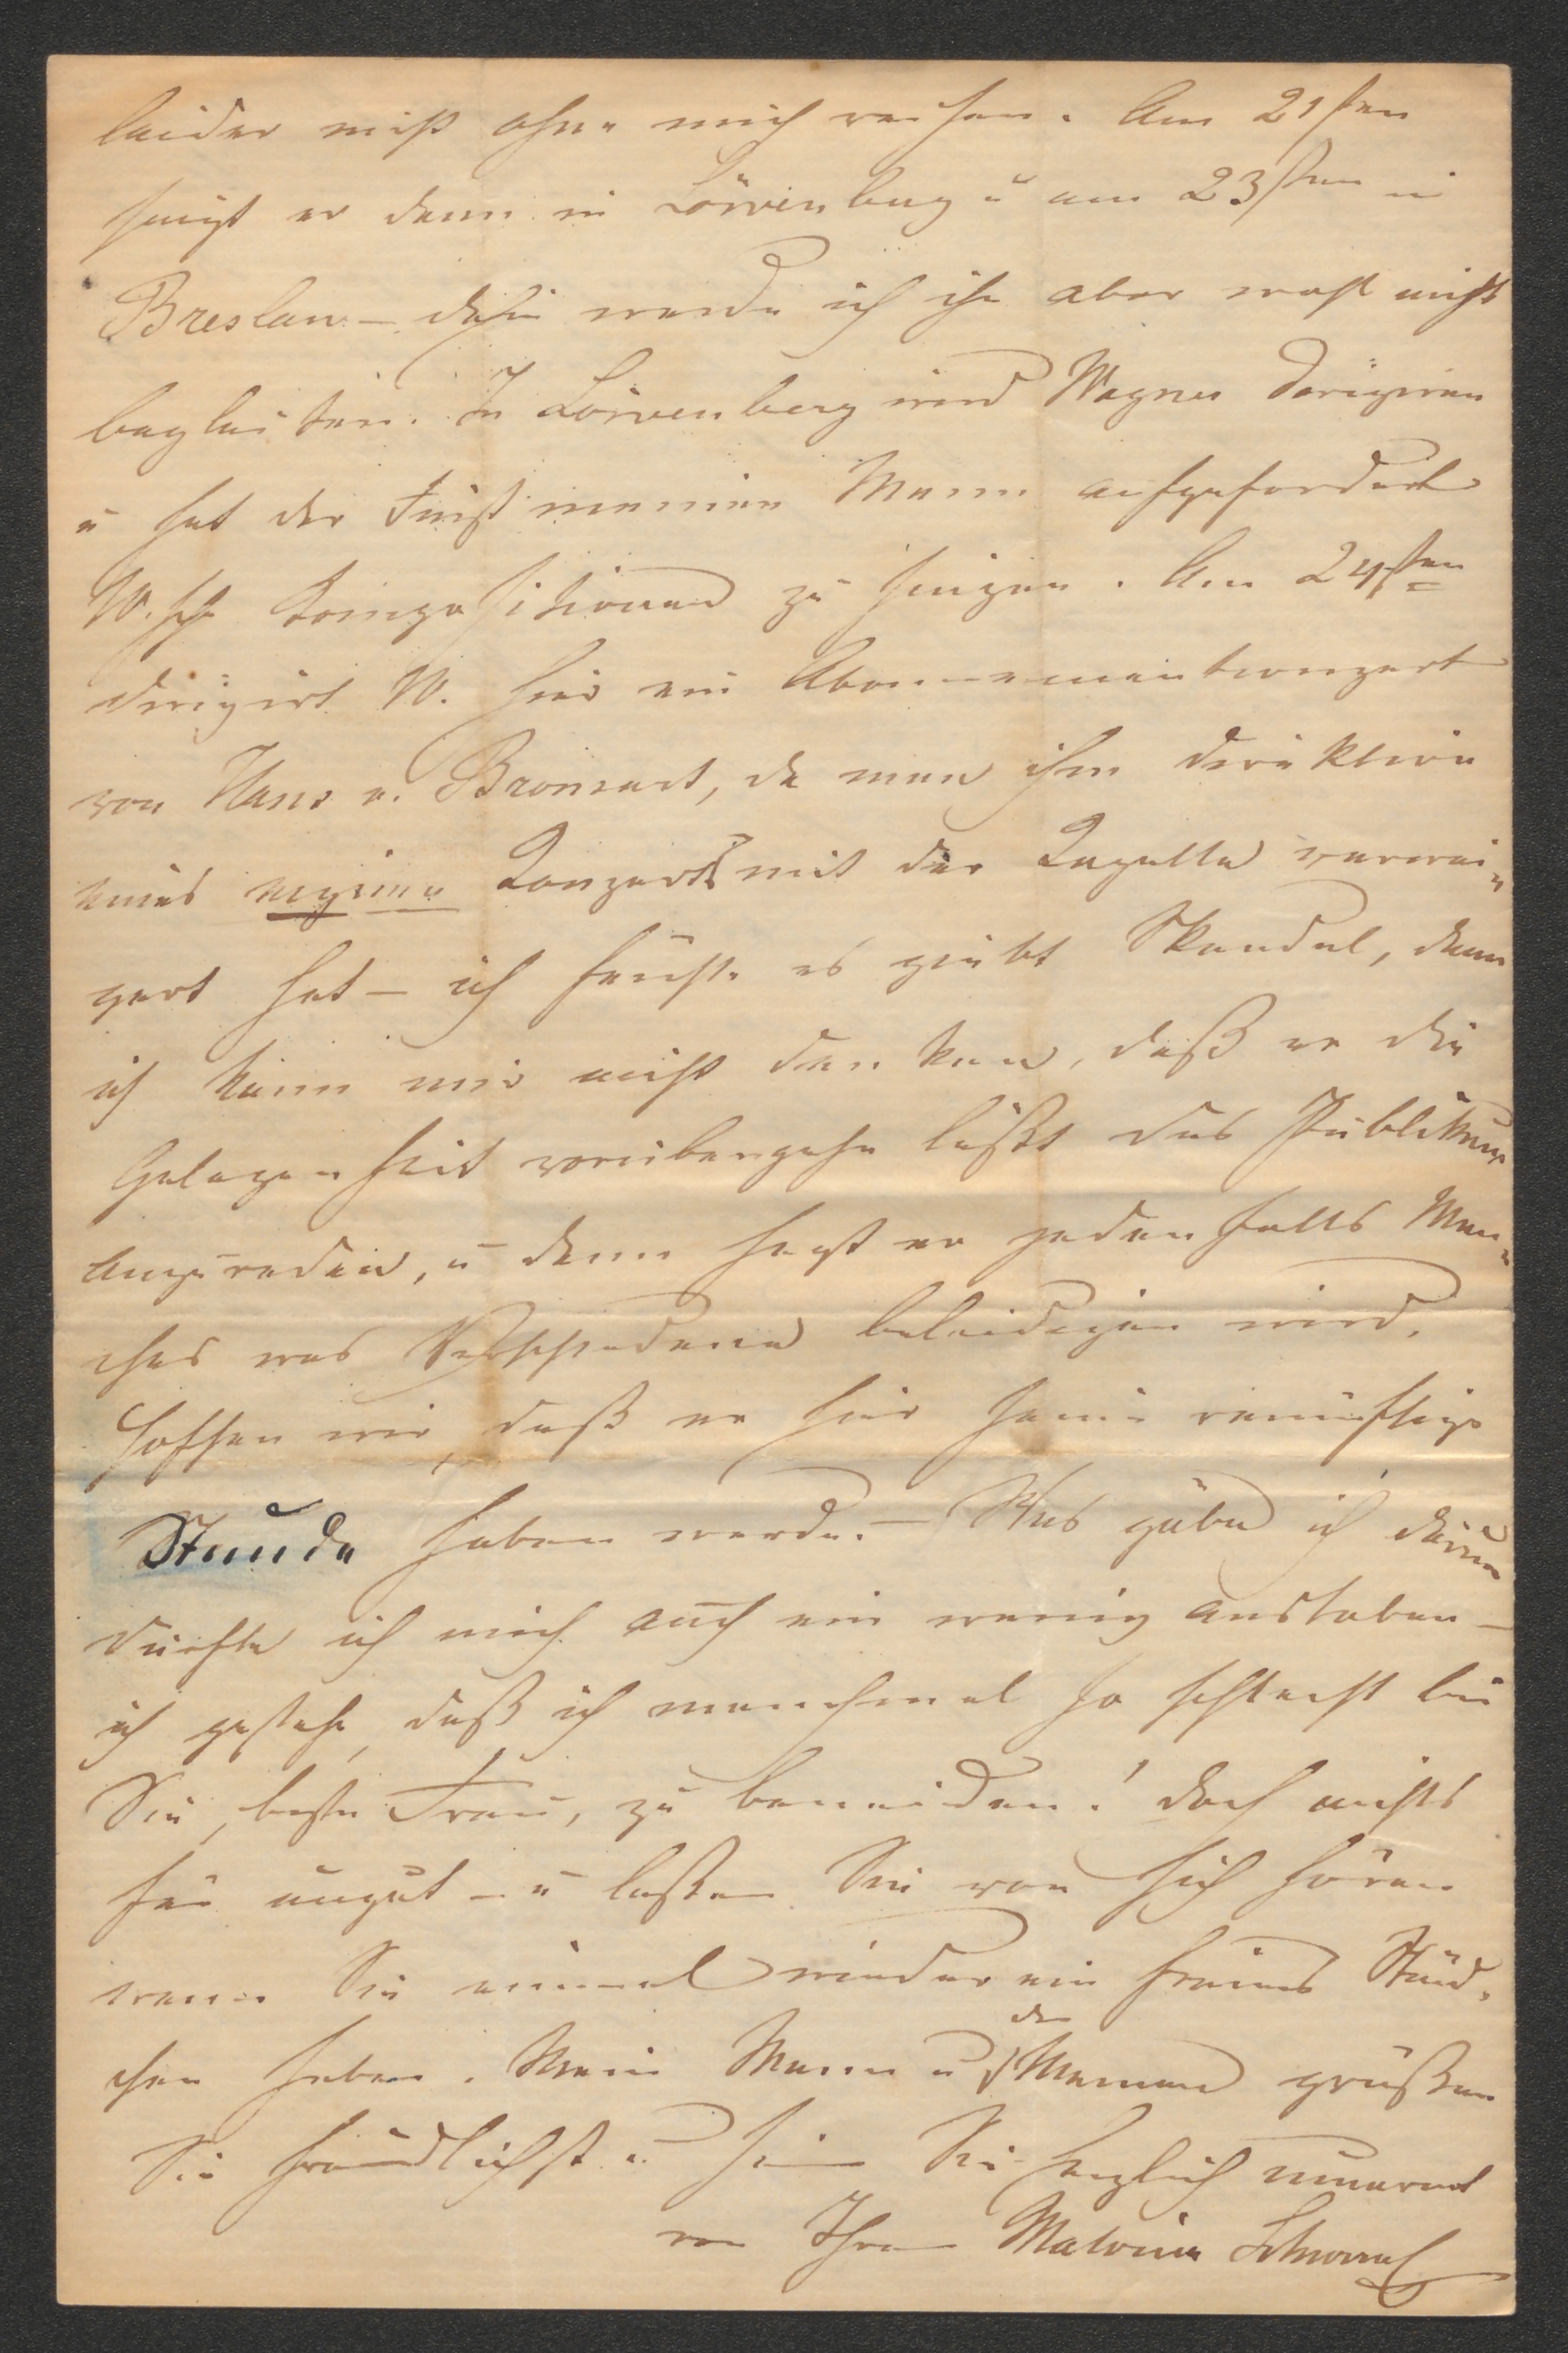 leider muß ohne mich reisen. Am 21sten
singt er dann in Löwenberg u am 23sten in
Breslau – dahin werde ich ihn aber wohl nicht
begleiten. In Löwenberg wird Wagner dirigiren
u hat der Fürst meinen Mann aufgefordert
W.sche Kompositionen zu singen. Am 24sten
dirigirt W. hier ein Abonnementkonzert
von Hans v. Bronsart, da man ihm Direktion
eines eigenen Konzerts mit der Kapelle verwei-
gert hat – ich fürchte es giebt Skandal, denn
ich kann mir nicht denken, daß er die
Gelegenheit vorübergehn läßt das Publikum
anzureden, u dann sagt er jedenfalls Man-
ches was Verschiedene beleidigen wird.
Hoffen wir, daß er hier seine vernünftige
Stunde haben werde. – Was gäbe ich darum
dürfte ich mich auch ein wenig austoben –
ich gestehe, daß ich manchmal so schlecht bin
Sie, beste Frau, zu beneiden! doch nichts
für ungut – u lassen Sie von sich hören
wenn Sie einmal wieder ein freies Stünd-
chen haben. Mein Mann u die Maman grüßen
Sie freundlichst u sein Sie herzlich umarmt
von Ihrer Malvina Schnorr